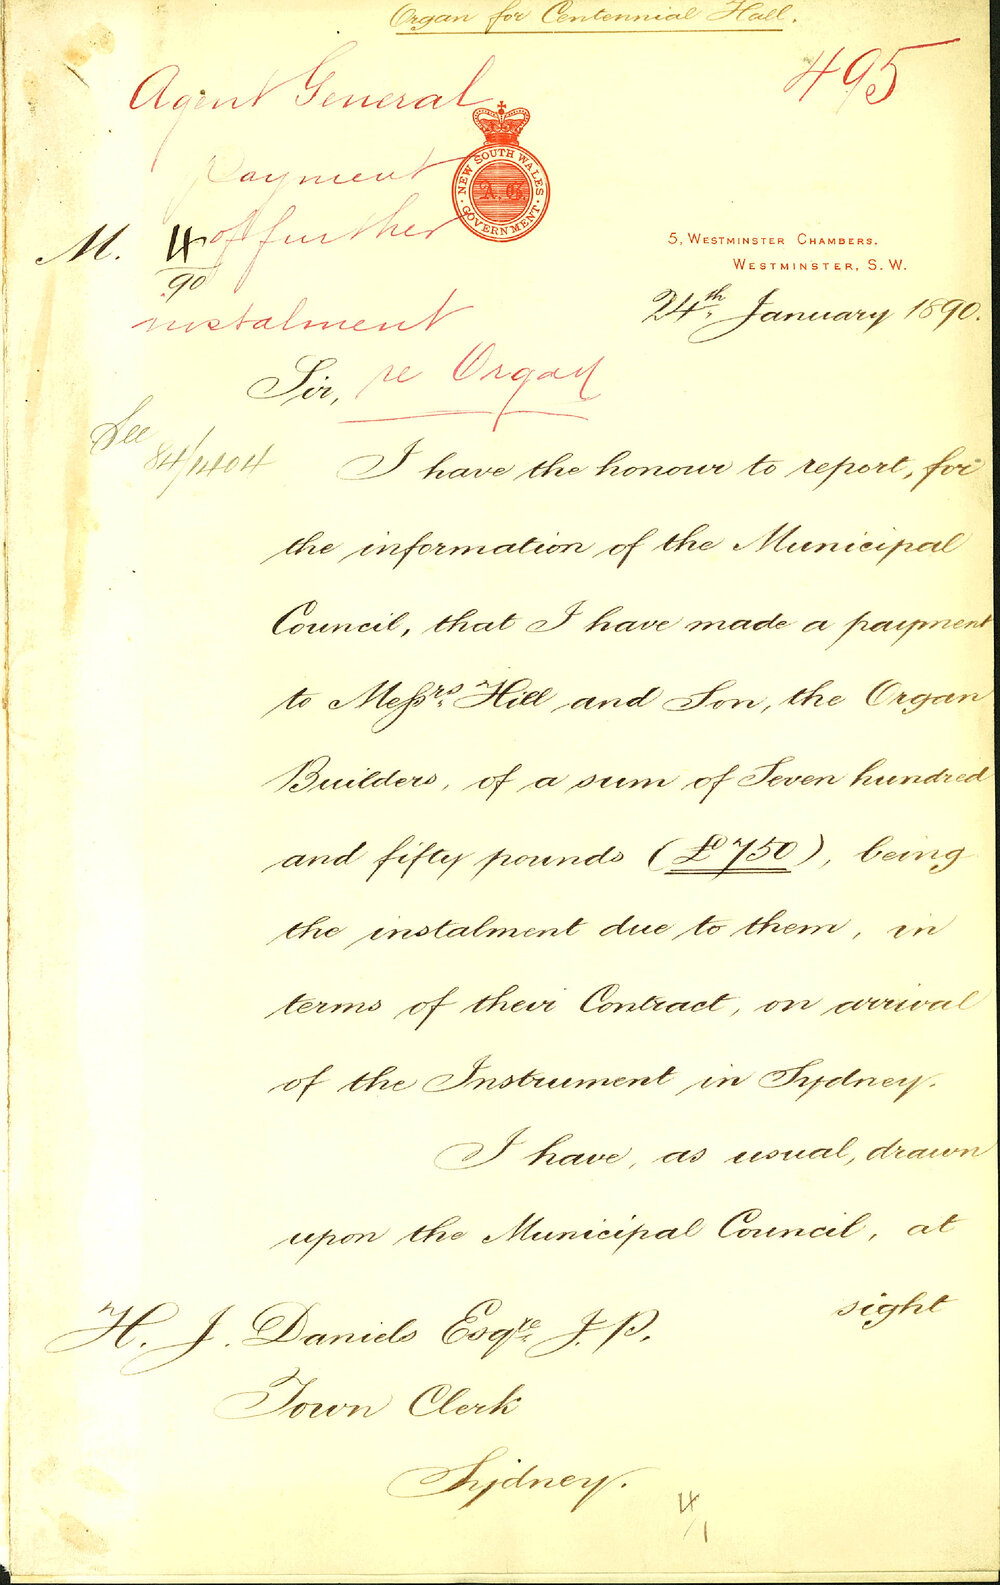 Organ for Centennial Hall.
495
Agent General
Payment
of further
instalment
re Organ
NEW SOUTH WALES
A.G.
GOVERNMENT
M. 4/90
5, WESTMINSTER CHAMBERS.
WESTMINSTER, S.W.
24th January 1890.
Sir,
See
84/1404
I have the honour to report, for
the information of the Municipal
Council, that I have made a payment
to Messrs Hill and Son, the Organ
Builders, of a sum of Seven hundred
and fifty pounds (£750), being
the instalment due to them, in
terms of their Contract, on arrival
of the Instrument in Sydney.
I have, as usual, drawn
upon the Municipal Council, at
sight
H. J. Daniels Esqre J.P.
Town Clerk
Sydney.
4/1